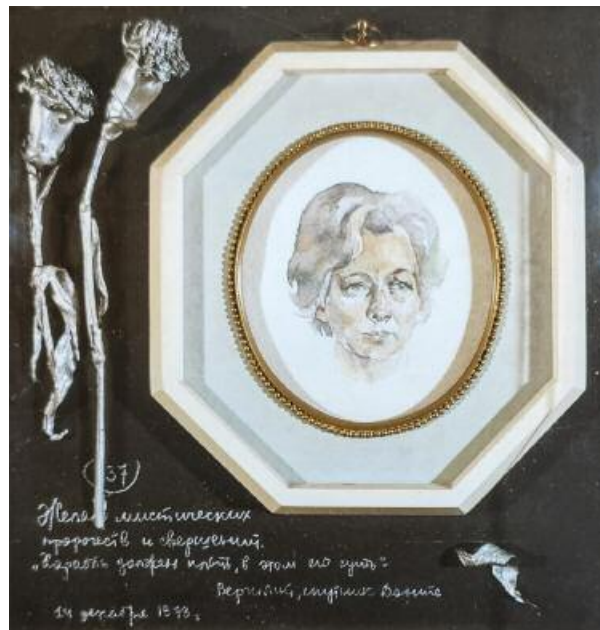 37
Желаю мистических
пророчеств и свершений.
"Корабль должен плыть, в этом его суть"
Вергилий, спутник Данте
14 декабря 1973г